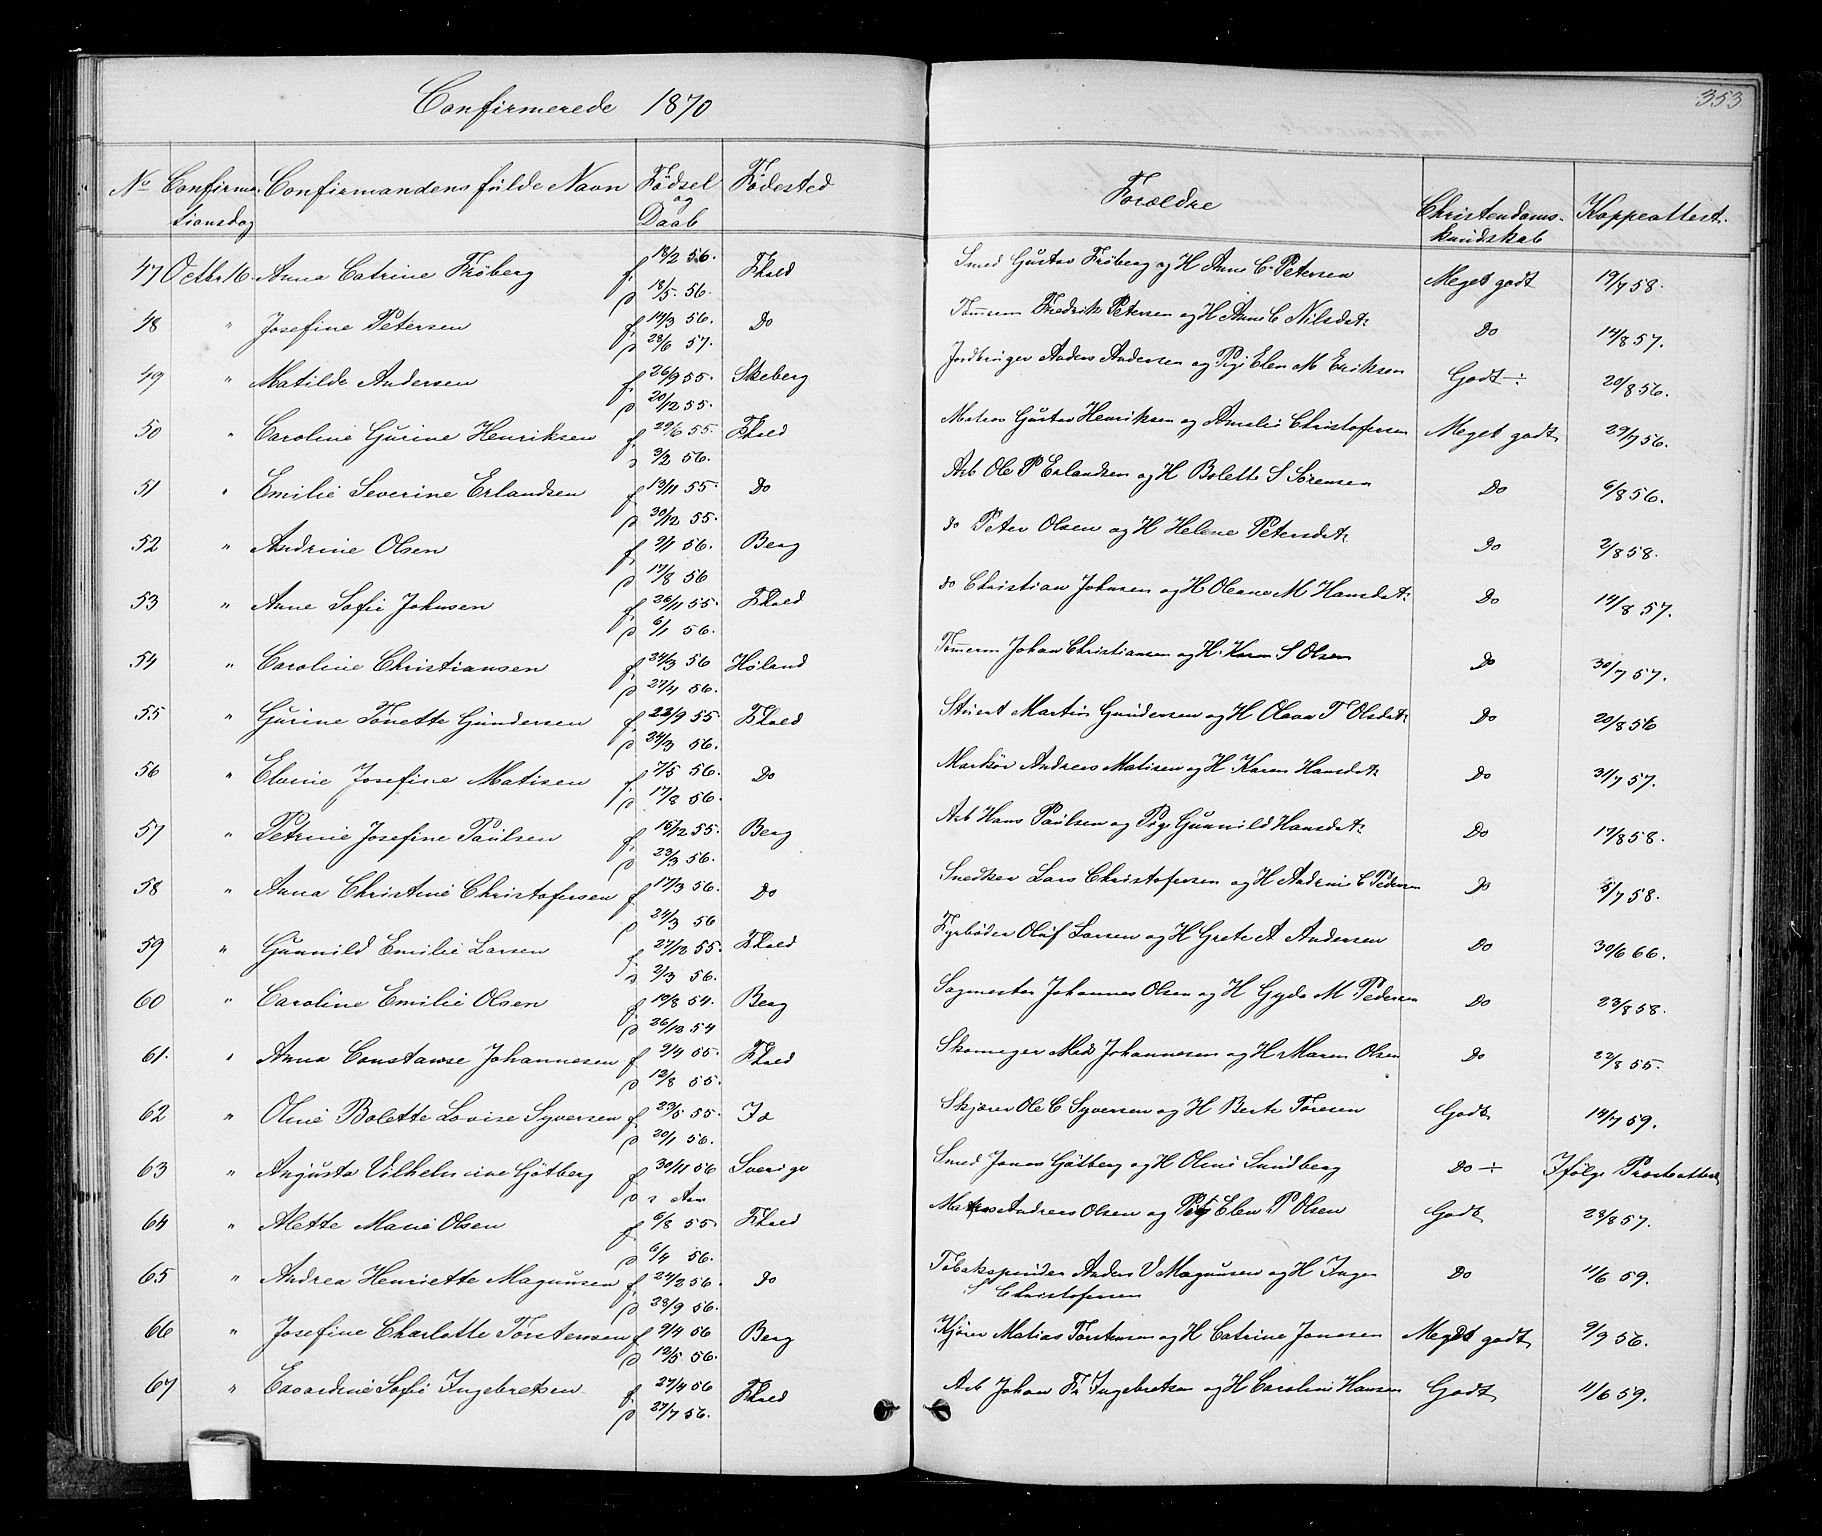 353
Confirmerede 1870
No Confirma- Confirmandens fulde Navn Fødsel Fødested Forældre Christendoms- Koppeattest.
tionsdag og kundskab
Daab
47 Octbr 16. Anna Catrine Frøberg f 13/2 56. Fhald Smed Gustav Frøberg og H Anne C. Petersen Meget godt 19/7 58.
d 18/5. 56.
48 " Josefine Petersen f 14/3 56. Do Tømrm Fredrik Petersen og H Anne C Nilsdtr Do 14/8 57.
d 23/6 57.
49 " Matilde Andersen f 26/9 55. Skeberg Jordbruger Anders Andersen og Pige Elen M Eriksen Godt ÷ 20/8 56.
d 20/12 55.
50 " Caroline Gurine Henriksen f 29/6 55. Fhald Matros Gustav Henriksen og Amalie Christofersen Meget godt 29/7 56.
d 3/2 56.
51 " Emilie Severine Erlandsen f 13/11 55. Do Arb Ole P Erlandsen og H Bolette S Sørensen Do 6/8 56.
d 30/12 55.
52 " Andrine Olsen f 9/1 56. Berg do Peter Olsen og H Helene Petersdtr Do 2/8 58.
d 17/8 56
53 " Anne Sofie Johnsen f 26/11 55. Fhald do Christian Johnsen og H Oleane M Hansdtr Do 14/8 57.
d 6/1 56.
54 " Caroline Christiansen f 24/3 56 Høland Tømrm Johan Christiansen og H. Karen S Olsen Do 30/7 57.
d 27/4 56.
55 " Gurine Tonette Gundersen f 22/9 55. Fhald Stuert Martin Gundersen og H Olava T Olsdtr Do 20/8 56
d 24/3 56.
56 " Elvine Josefine Matisen f 7/5 56. Do Markør Andreas Matisen og H. Karen Hansdtr Do 31/7 57.
d 17/8 56.
57 " Petrine Josefine Paulsen f 16/12 55. Berg Arb Hans Paulsen og Pige Gunnild Hansdtr Do 17/8 58.
d 23/3 56.
58 " Anna Christine Christofersen f 17/3 56. Do Snedker Lars Christofersen og H Andrine C Pedersen Do 5/7 58.
d 24/3 56
59 " Gunnild Emilie Larsen f 27/10 55. Fhald Fyrbøder Oluf Larsen og H Grete A Andersen Do 30/6 66.
d 2/3 56.
60 " Caroline Emilie Olsen f 19/8 54. Berg Sagmester Johannes Olsen og H Gyda M Pedersen Do 23/8 58.
d 26/12 54
61. " Anna Constanse Johannesen f 9/4 55. Fhald Skomager Mads Johannesen og H Maren Olsen Do 22/8 55.
d 12/8 55.
62 " Oline Bolette Lovise Syversen f 23/5 55. Id Skjører Ole C Syversen og H Berte Toresen Godt 14/7 59.
d 20/1 56.
63 " Augusta Vilhelmine Götberg f 30/11 56 Sverige Smed Jonas Götberg og H Oline Sundberg Do ÷ Ifølge Presteattest
d s Aar
64 " Alette Marie Olsen f 6/8 55 Fhald Matros Andreas Olsen og Pig Elen P Olsen Godt 23/8 57.
d 6/4 56.
65 " Andrea Henriette Magnusen f 24/2 56. Do Tobakspinder Anders V Magnusen og H Inger Do 11/6 59.
d 28/9 56. S Christofersen
66 " Josefine Charlotte Torstensen f 9/4 56 Berg Kjører Matias Torstensen og H Catrine Jonasen Meget godt 9/9 56.
d 12/5 56.
67 " Edvardine Sofie Ingebretsen f 27/4 56 Fhald Arb Johan Fr Ingebretsen og H Caroline Hansen Godt 11/6 59.
d 27/7 56.